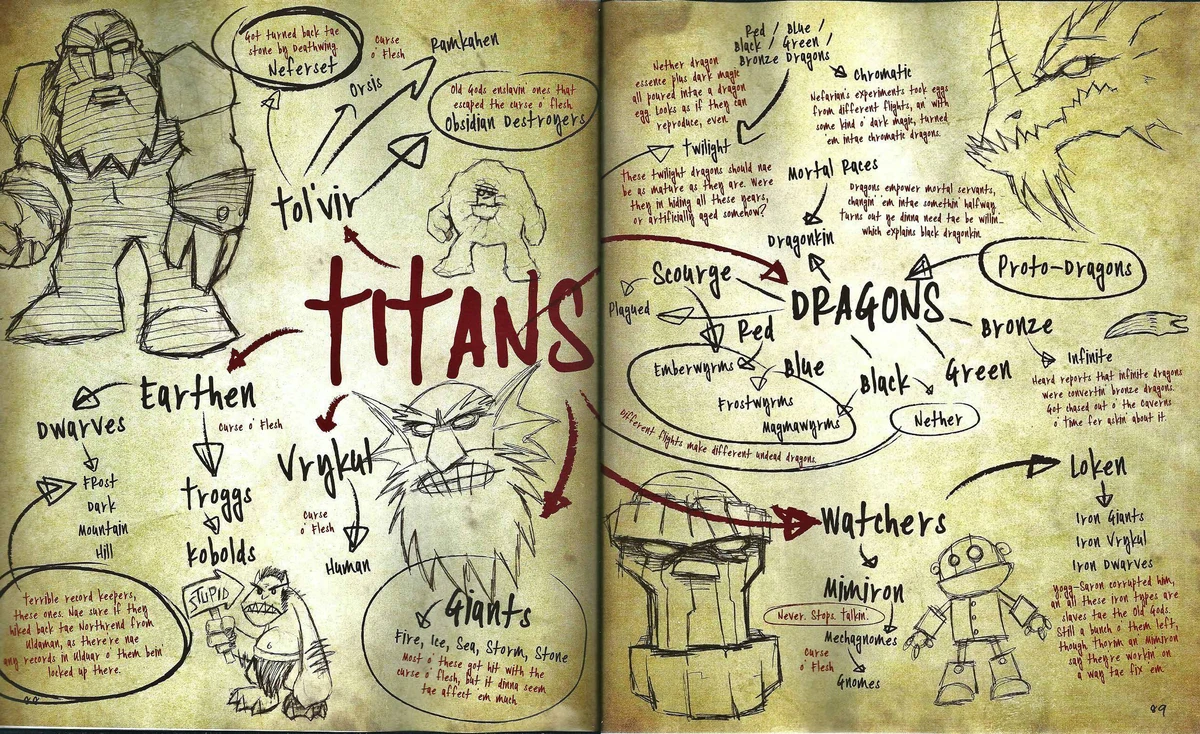 Got turned back tae
stone by Deathwing.
Neferset
Curse
o' Flesh
Ramkahen
Orsis
Old Gods enslavin' ones that
escaped the curse o' flesh.
Obsidian Destroyers
tol'vir
TITANS
Earthen
Curse o' Flesh
Dwarves
Frost
Dark
Mountain
Hill
Terrible record keepers,
these ones. Nae sure if they
hiked back tae Northrend from
Uldaman, as there're nae
any records in Ulduar o' them bein'
locked up there.
Troggs
Kobolds
STUPID
Vrykul
Curse
o' Flesh
Human
Giants
Fire, Ice, Sea, Storm, Stone
Most o' these got hit with the
curse o' flesh, but it dinna seem
tae affect 'em much.
Red / Blue /
Black / Green /
Bronze Dragons
Nether dragon
essence plus dark magic
all poured intae a dragon
egg. Looks as if they can
reproduce, even.
Twilight
These twilight dragons should nae
be as mature as they are. Were
they in hiding all these years,
or artificially aged somehow?
Chromatic
Nefarian's experiments took eggs
from different flights, an' with
some kind o' dark magic, turned
'em intae chromatic dragons.
Mortal Races
Dragons empower mortal servants,
changin' 'em intae somethin' halfway.
Turns out ye dinna need tae be willin'...
which explains black dragonkin.
Dragonkin
Proto-Dragons
Scourge
Plagued
DRAGONS
Red
Blue
Black
Green
Bronze
Infinite
Heard reports that infinite dragons
were convertin' bronze dragons.
Got chased out o' the Caverns
o' Time fer askin' about it.
Emberwyrms
Frostwyrms
Magmawyrms
Different flights make different undead dragons.
Nether
Watchers
Loken
Iron Giants
Iron Vrykul
Iron Dwarves
Yogg-Saron corrupted him,
an' all these iron types are
slaves tae the Old Gods.
Still a bunch o' them left,
though Thorim an' Mimiron
say they're workin' on
a way tae fix 'em.
Mimiron
Never. Stops. Talkin'.
Mechagnomes
Curse
o' Flesh
Gnomes
88
89